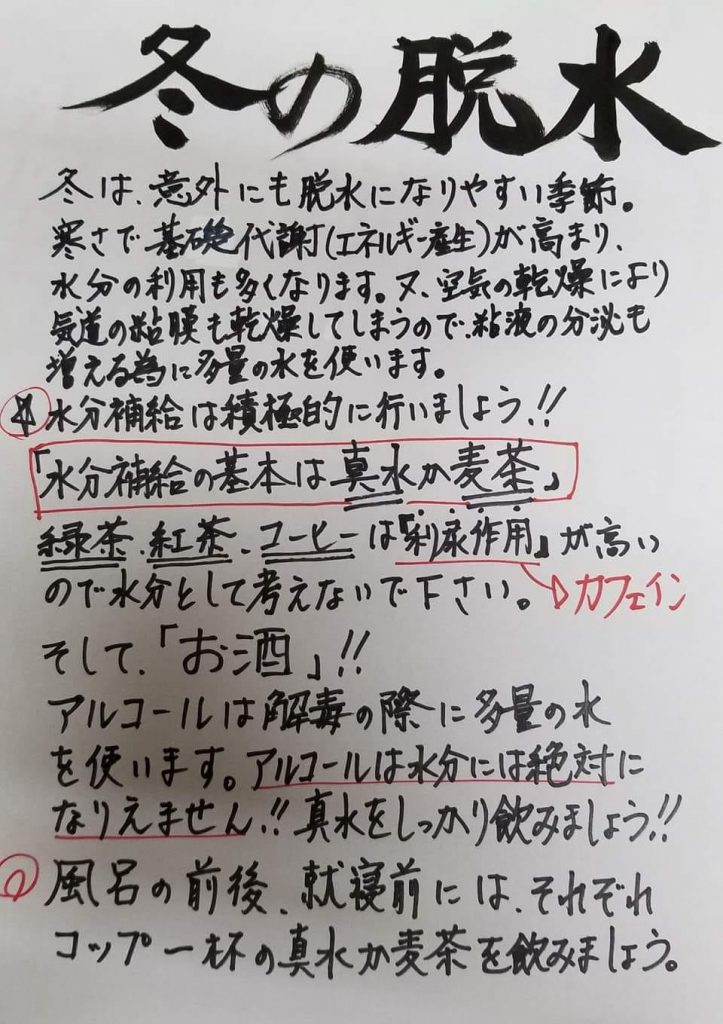 冬の脱水
冬は、意外にも脱水になりやすい季節。
寒さで基礎代謝(エネルギー産生)が高まり、
水分の利用も多くなります。又、空気の乾燥により
気道の粘膜も乾燥してしまうので、粘液の分泌も
増える為に多量の水を使います。
☆水分補給は積極的に行いましょう!!
「水分補給の基本は真水か麦茶」
緑茶、紅茶、コーヒーは『利尿作用』が高い
ので水分として考えないで下さい。→カフェイン
そして、「お酒」!!
アルコールは解毒の際に多量の水
を使います。アルコールは水分には絶対に
なりえません!!真水をしっかり飲みましょう!!
風呂の前後、就寝前には、それぞれ
コップ一杯の真水か麦茶を飲みましょう。